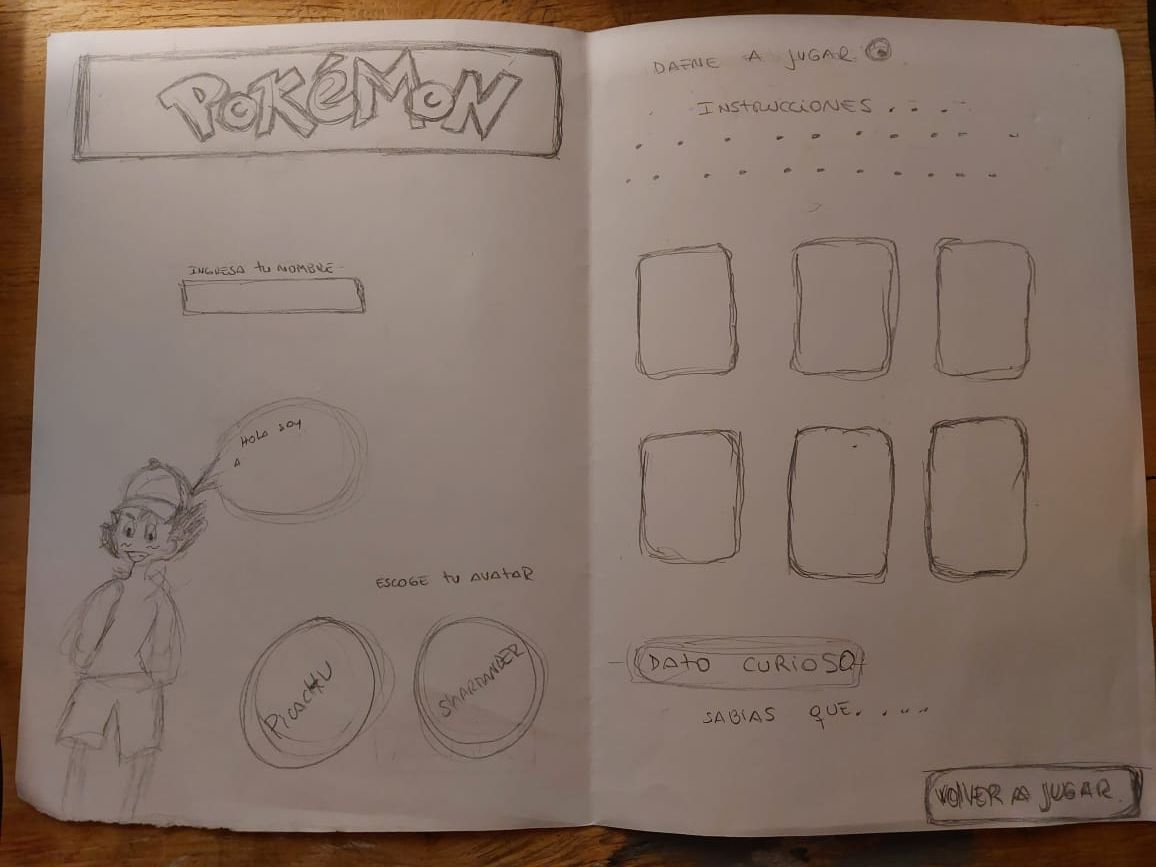 POKéMON
INGRESA tu NOMBRE
HOLA SOY
A
ESCOGE tu AVATAR
PICACHU
SHARMANDER
DAFNE A JUGAR
INSTRUCCIONES . . . .
DATO CURIOSO
SABIAS QUE. . . . .
VOLVER A JUGAR